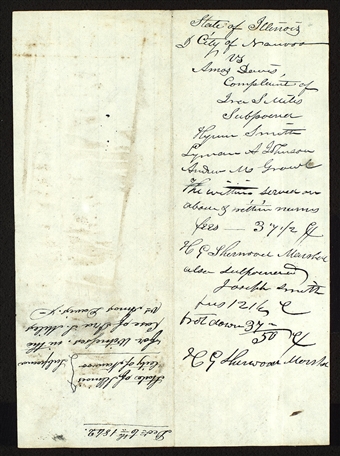 State of Illinois
City of Nauvoo
vs
Amos Davis,
Complaint of
Ira S. Miles
Subpoena
Hyrum Smith
Lyman A
Andrew M
The within served on
above & within names
fees — 37 1/2
H G Sherwood Marshal
also subpoenaed
Joseph Smith
fees 12 1/2
brot down 37 —
50
H G Sherwood Marshal
State of Illinois
City of Nauvoo
Subpoena
for Witnesses in the
Case of Ira S. Miles
vs Amos Davis
Decr. 6th 1842.